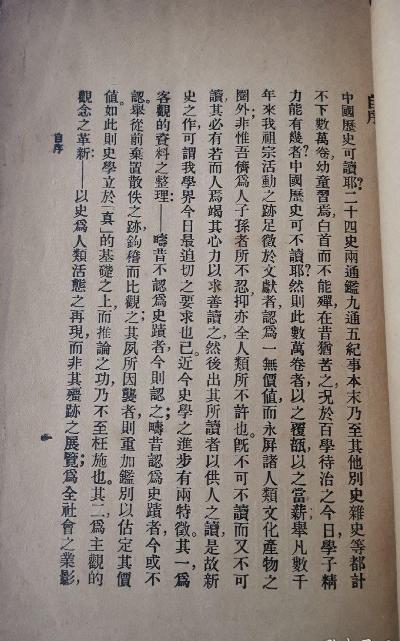 自序
中國歷史可讀耶?二十四史兩通鑑九通五紀事本末乃至其他別史雜史等都計
不下數萬卷幼童習焉白首而不能殫在昔猶苦之況於百學待治之今日學子精
力能有幾者?中國歷史可不讀耶?然則此數萬卷者以之覆瓿以之當薪舉凡數千
年來我祖宗活動之跡足徵於文獻者認爲一無價值而永屏諸人類文化產物之
圈外非惟吾儕爲人子孫者所不忍抑亦全人類所不許也。旣不可不讀而又不可
讀其必有若而人焉竭其心力以求善讀之然後出其所讀者以供人之讀是故新
史之作可謂我學界今日最迫切之要求也已。近今史學之進步有兩特徵。其一,爲
客觀的資料之整理:——疇昔不認爲史蹟者今則認之;疇昔認爲史蹟者今或不
認。舉從前棄置散佚之跡鉤稽而比觀之;其夙所因襲者則重加鑑別以估定其價
值。如此則史學立於「真」的基礎之上而推論之功乃不至枉施也。其二,爲主觀的
觀念之革新:——以史爲人類活態之再現而非其殭跡之展覽;爲全社會之業影,
自序
一